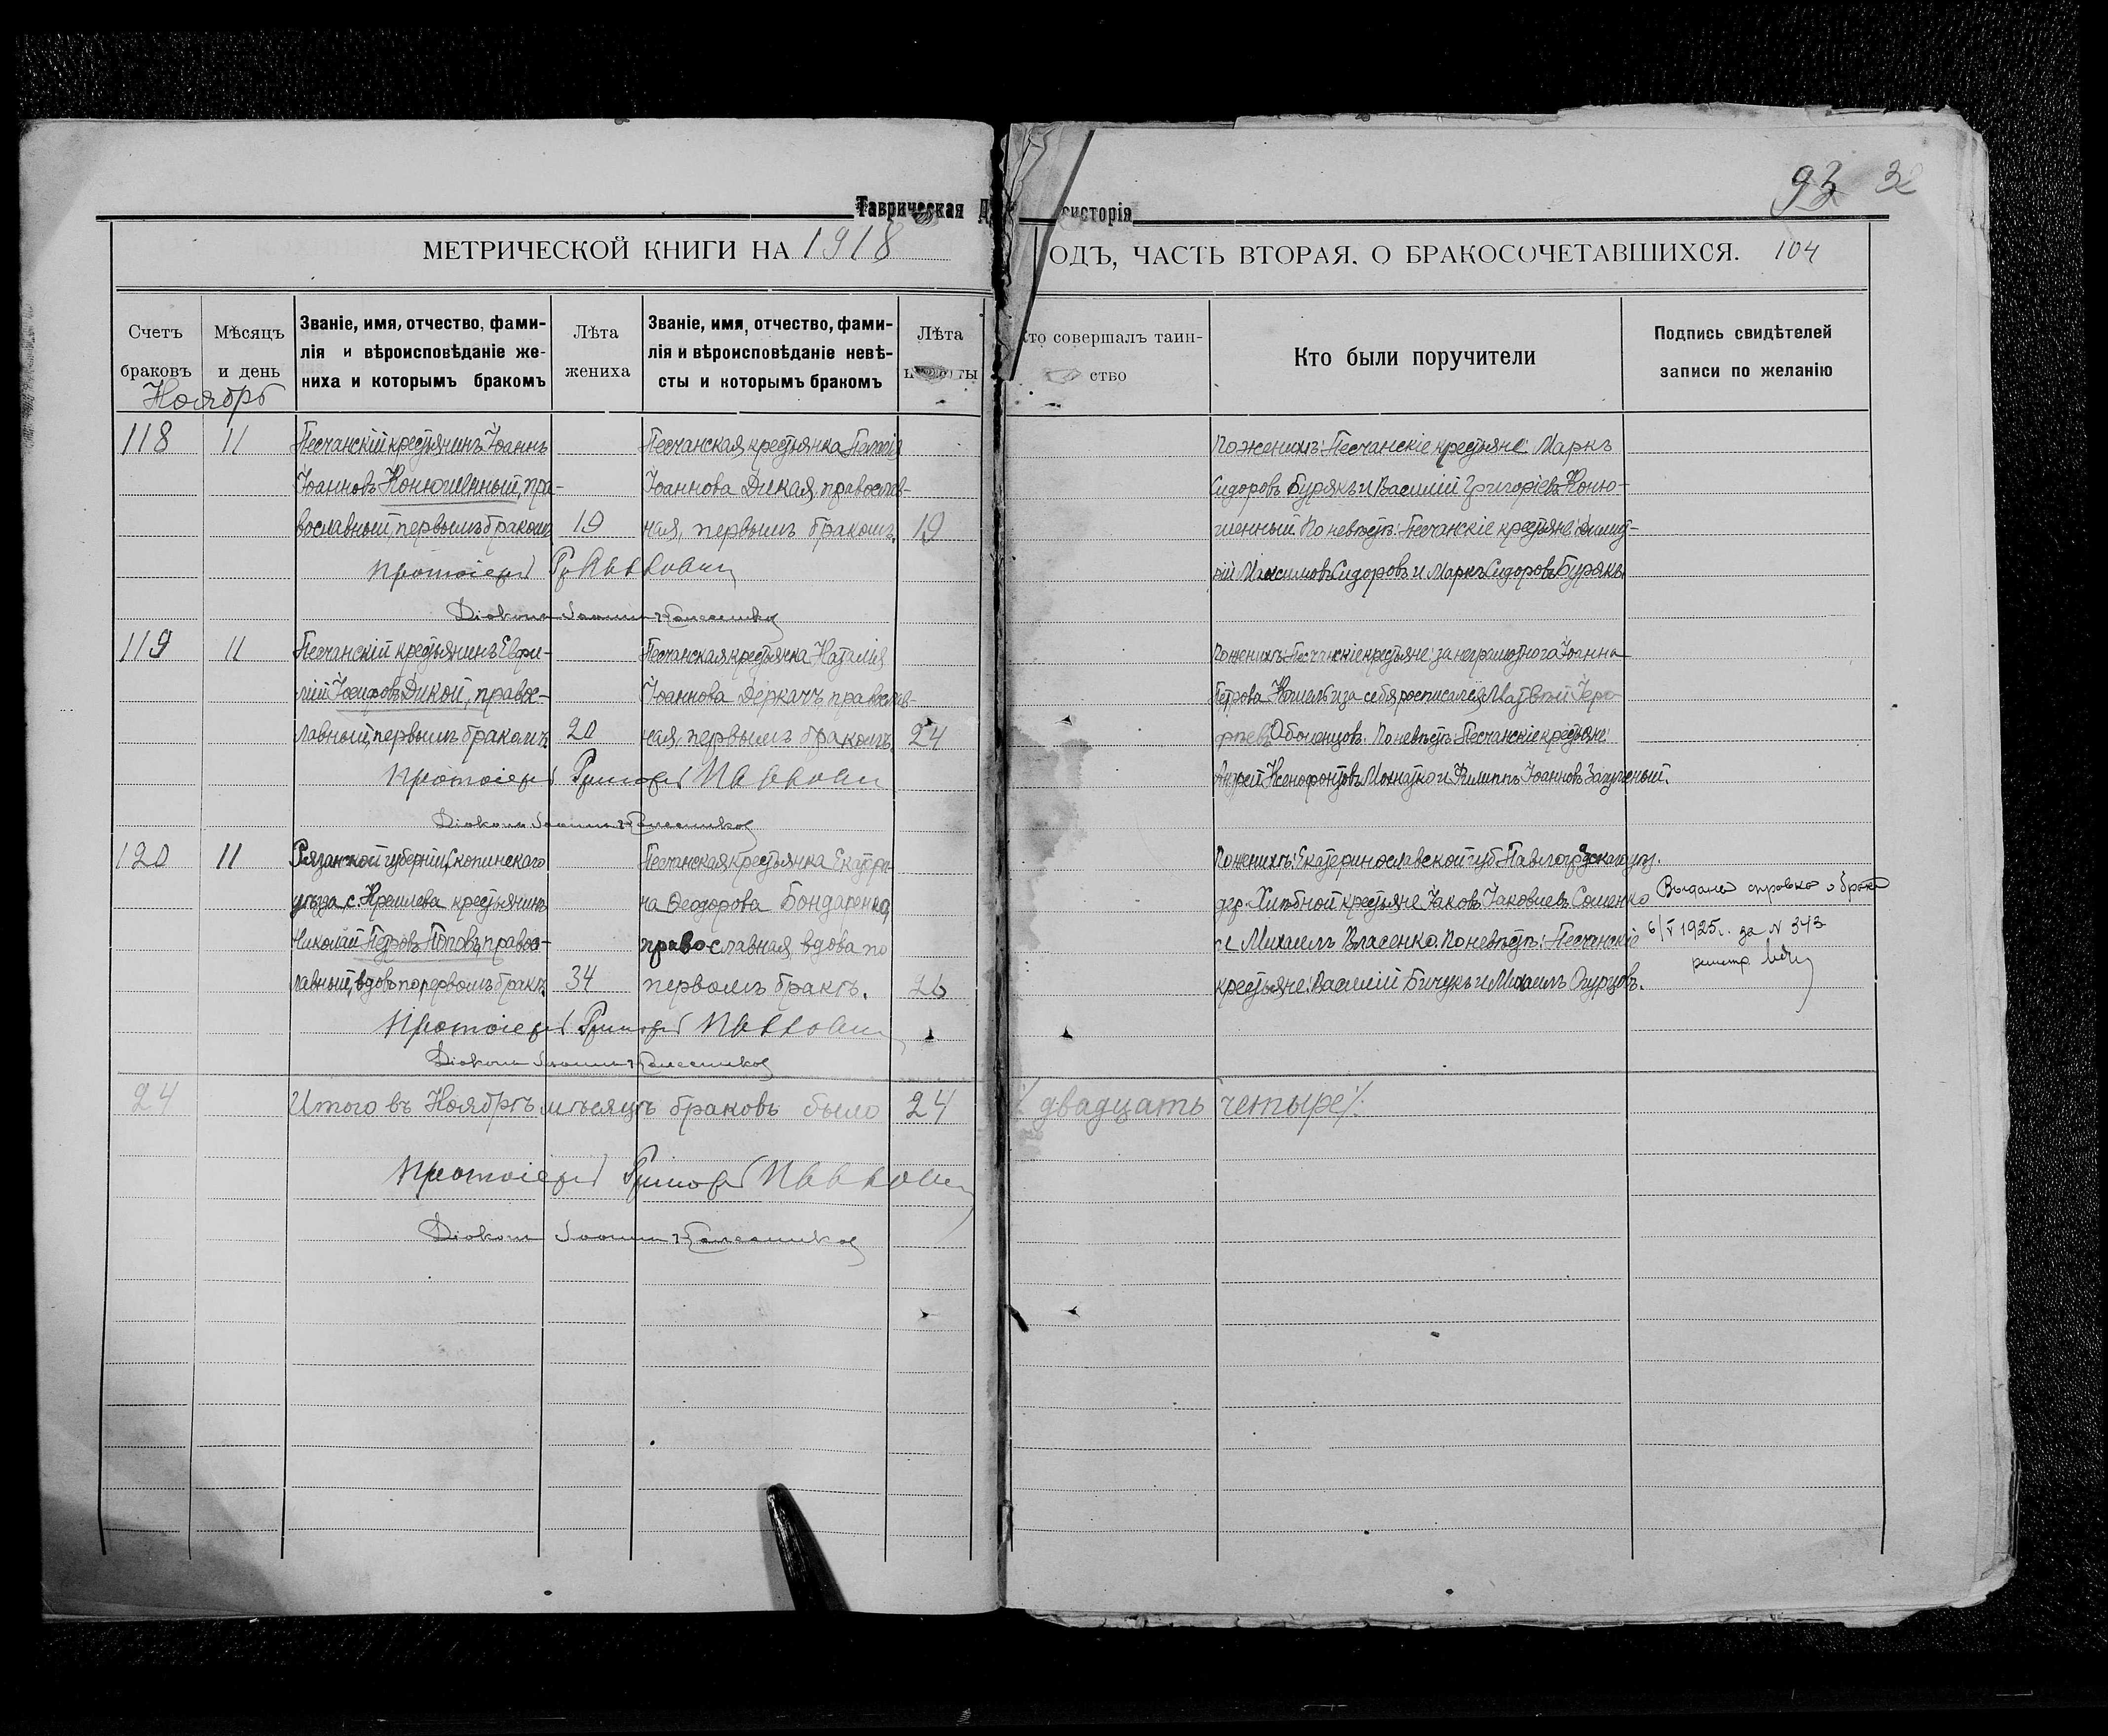 93 32
Таврическая Д систорія
МЕТРИЧЕСКОЙ КНИГИ НА 1918
ОДЪ, ЧАСТЬ ВТОРАЯ. О БРАКОСОЧЕТАВШИХСЯ. 104
Счетъ браковъ
Мѣсяцъ и день
Званіе, имя, отчество, фами-
лія и вѣроисповѣданіе же-
ниха и которымъ бракомъ
Лѣта жениха
Званіе, имя, отчество, фами-
лія и вѣроисповѣданіе невѣ-
сты и которымъ бракомъ
Лѣта
то совершалъ таин-
ство
Кто были поручители
Подпись свидѣтелей
записи по желанію
Ноябрь
118 11
Песчанскій крестьянинъ Іоаннъ
Іоанновъ Конюшенный, пра-
вославный, первымъ бракомъ 19
Песчанская крестьянка
Іоаннова Дикая, православ-
ная, первымъ бракомъ. 19
По женихѣ: Песчанскіе крестьяне: Маркъ
Сидоровъ Бурякъ и Василій Григорьевъ Коню-
шенный. По невѣстѣ: Песчанскіе крестьяне: Димит-
рій Максимовъ Сидоровъ и Маркъ Сидоровъ Бурякъ
Протоіерей
Діаконъ Іоаннъ Колесниковъ
119 11
Песчанскій крестьянинъ Евфи-
мій Іосифовъ Дикой, правос-
лавный, первымъ бракомъ 20
Песчанская крестьянка Наталія
Іоаннова Деркачъ православ-
ная, первымъ бракомъ 24
По женихѣ: Песчанскіе крестьяне: за неграмотнаго Іоанна
Петрова и за себя росписался Матвѣй Іеро-
фѣевъ Оболенцовъ. По невѣстѣ: Песчанскіе крестьяне:
Андрей Ксенофонтовъ и Филиппъ Іоанновъ
Протоіерей Григорій
Діаконъ Іоаннъ Колесниковъ
120 11
Рязанской губерніи, Скопинскаго
уѣзда, с. Кремлева крестьянинъ
Николай Петровъ Поповъ, правос-
лавный, вдовъ по первомъ бракѣ. 34
Песчанская крестьянка Екатери-
на Феодорова Бондаренко,
православная, вдова по
первомъ бракѣ. 26
По женихѣ: Екатеринославской губ. Павлоградскаго у.
дер. Хлѣбной крестьяне Іаковъ Іаковлевъ Соменко
и Михаилъ Власенко. По невѣстѣ: Песчанскіе
крестьяне: Василій Бичукъ и Михаилъ Огурцовъ.
Выдана справка о браке
6/V 1925 г. за N 343
Протоіерей Григорій
Діаконъ Іоаннъ Колесниковъ
24 Итого въ Ноябрѣ мѣсяцѣ браковъ было 24 /двадцать четыре/.
Протоіерей Григорій
Діаконъ Іоаннъ Колесниковъ